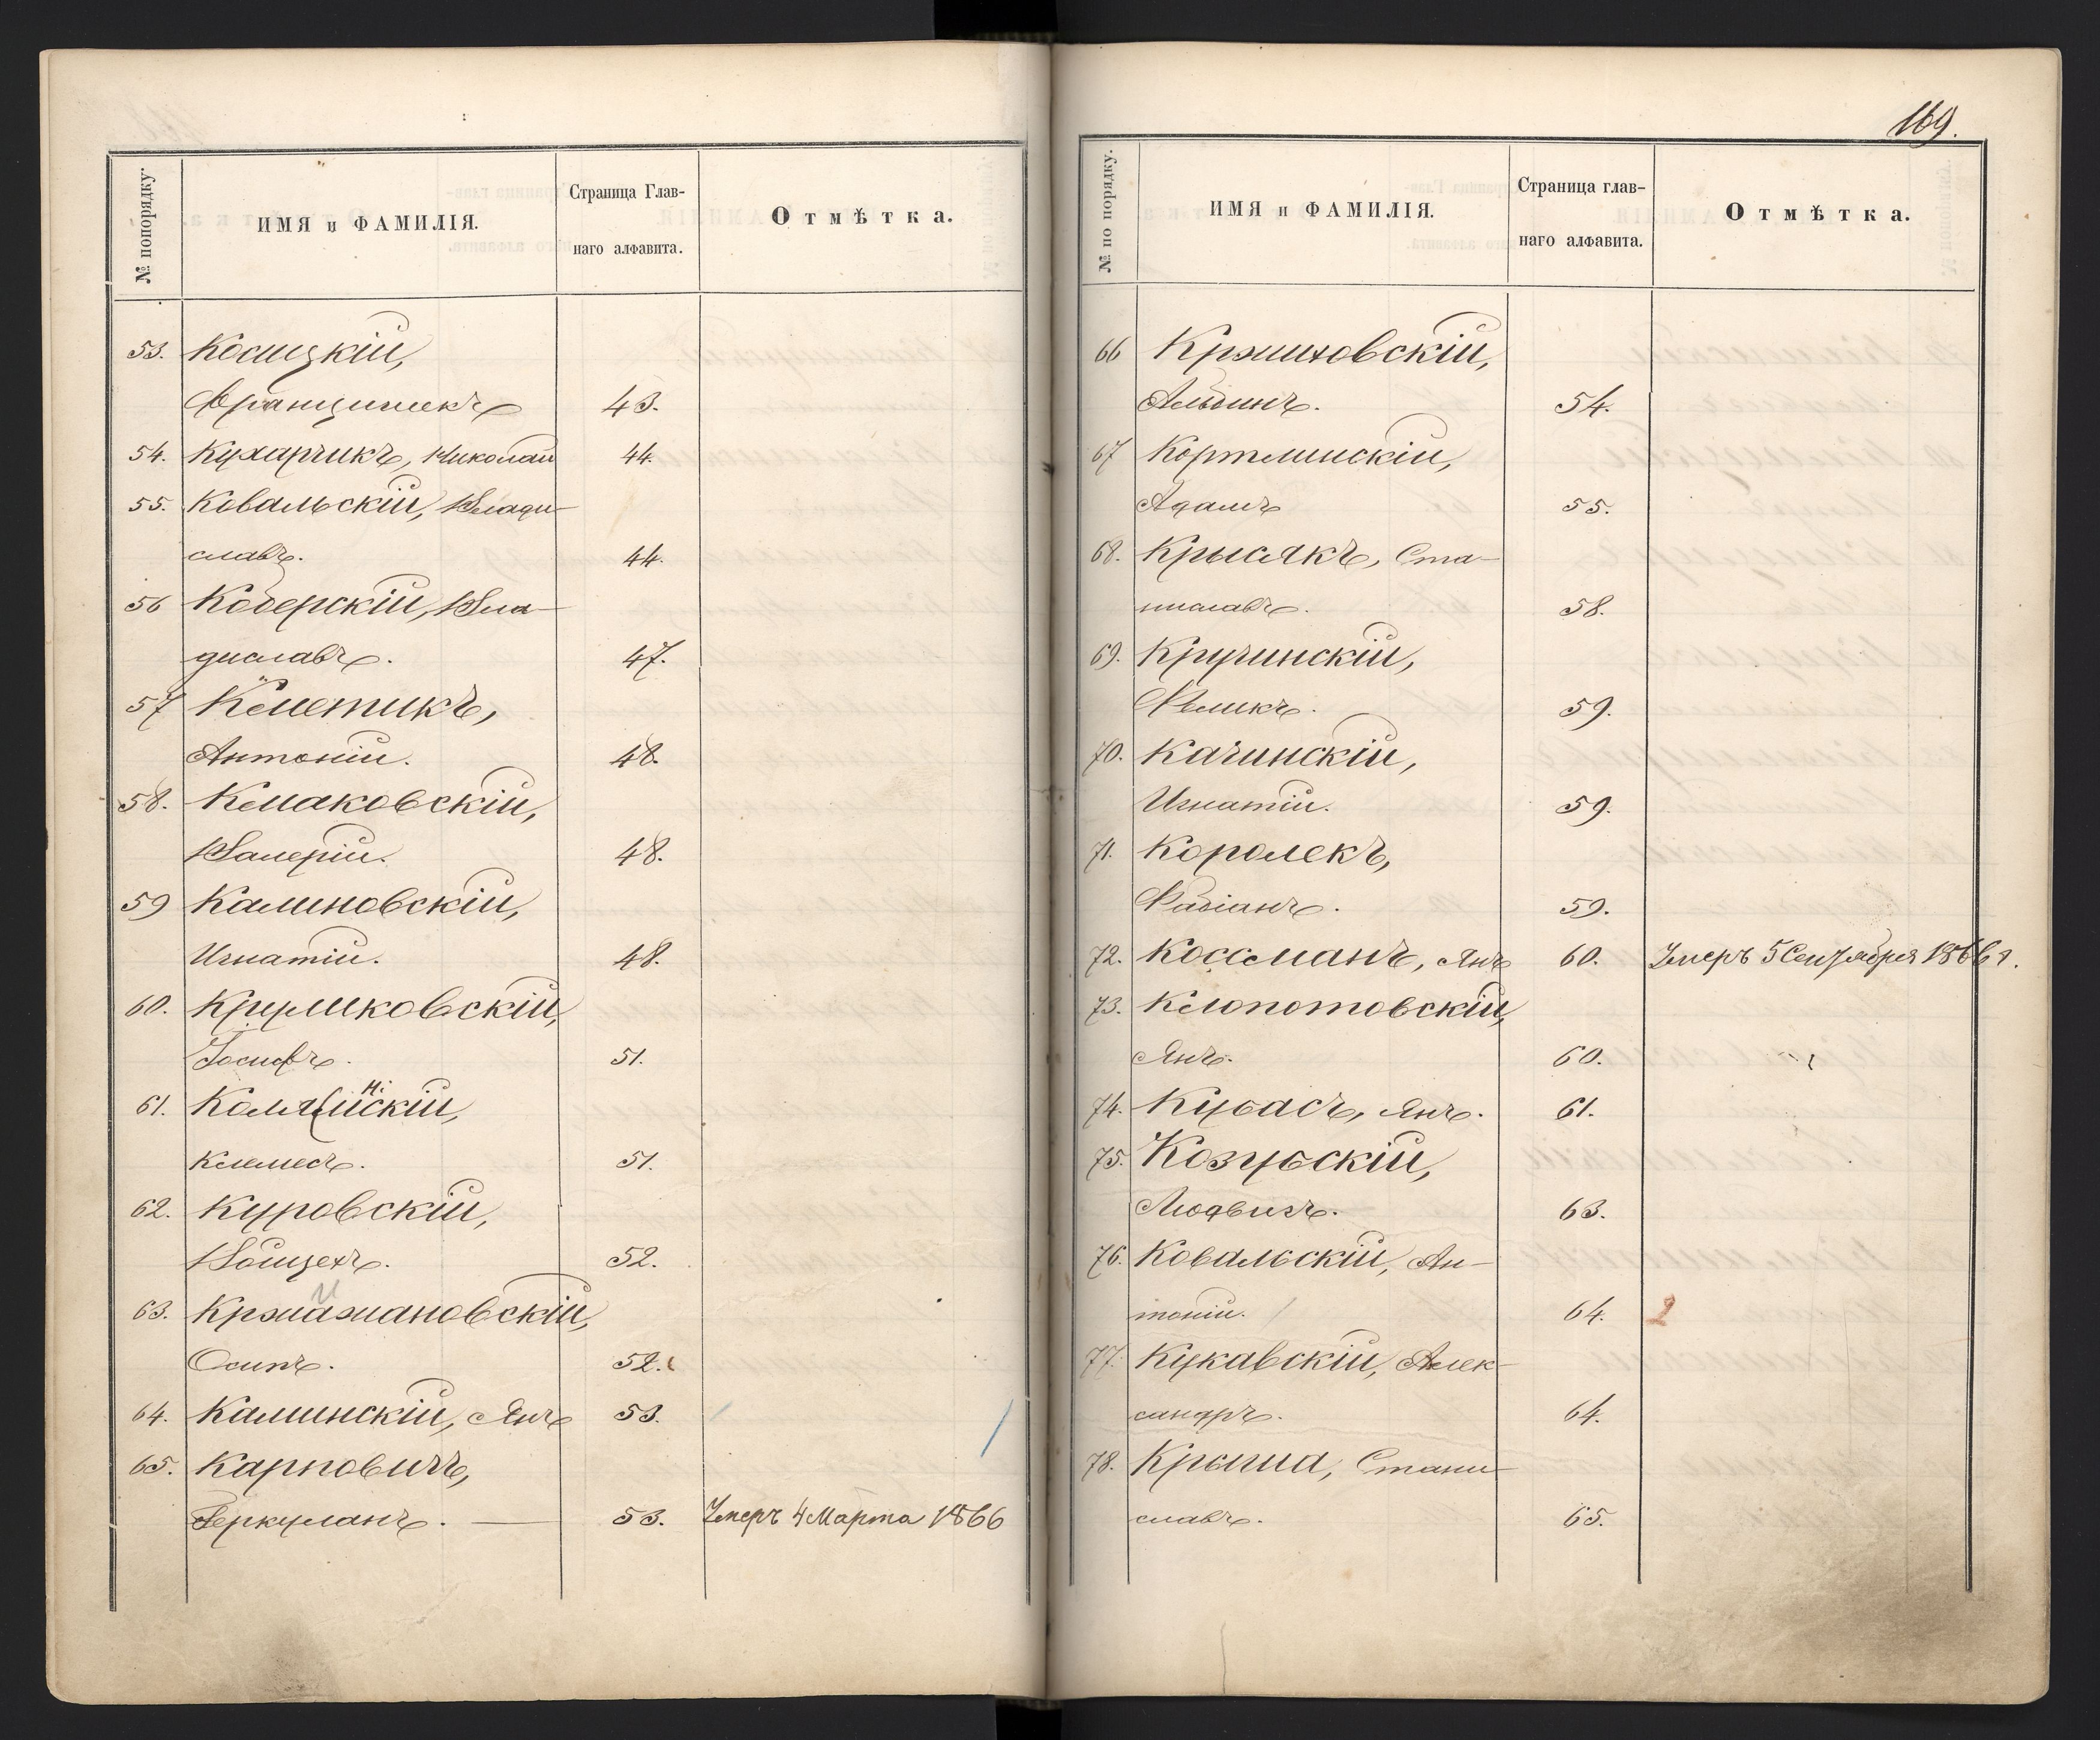 № попорядку.
ИМЯ и ФАМИЛІЯ.
Страница Глав-
наго алфавита.
Отмѣтка.
53. Косицкій,
Францишекъ 43.
54. Кухарчикъ, Николай 44.
55. Ковальскій, Влади-
славъ. 44.
56 Коберскій, Вла-
диславъ. 47.
57
Антоній. 48.
58. Клаковскій,
Валерій. 48.
59 Калиновскій,
Игнатій. 48.
60. Круликовскій,
Іосифъ. 51.
61.
Клемесъ. 51.
62. Куровскій,
Войцехъ. 52.
63. Кржижановскій,
Осипъ. 52.
64. Калинскій, Янъ 53.
65. Карповичъ,
Геркуланъ. — 53. Умеръ 4 Марта 1866
169.
№ по порядку.
ИМЯ и ФАМИЛІЯ.
Страница глав-
наго алфавита.
Отмѣтка.
66 Кржиховскій,
Альбинъ. 54.
67 Кортлинскій,
Адамъ 55.
68. Крысякъ, Ста-
ниславъ. 58.
69. Кручинскій,
Феликъ. 59.
70. Качинскій,
Игнатій. 59.
71. Королекъ,
Фабіанъ. 59.
72. Коссманъ, Янъ 60. Умеръ 5 Сентября 1866 г.
73. Клопотовскій,
Янъ. 60.
74. Кубасъ, Янъ. 61.
75. Козубскій,
Людвигъ. 63.
76. Ковальскій, Ан-
тоній. 64. 2
77. Кукавскій, Алек-
сандръ. 64.
78. Крыша, Стани-
славъ. 65.